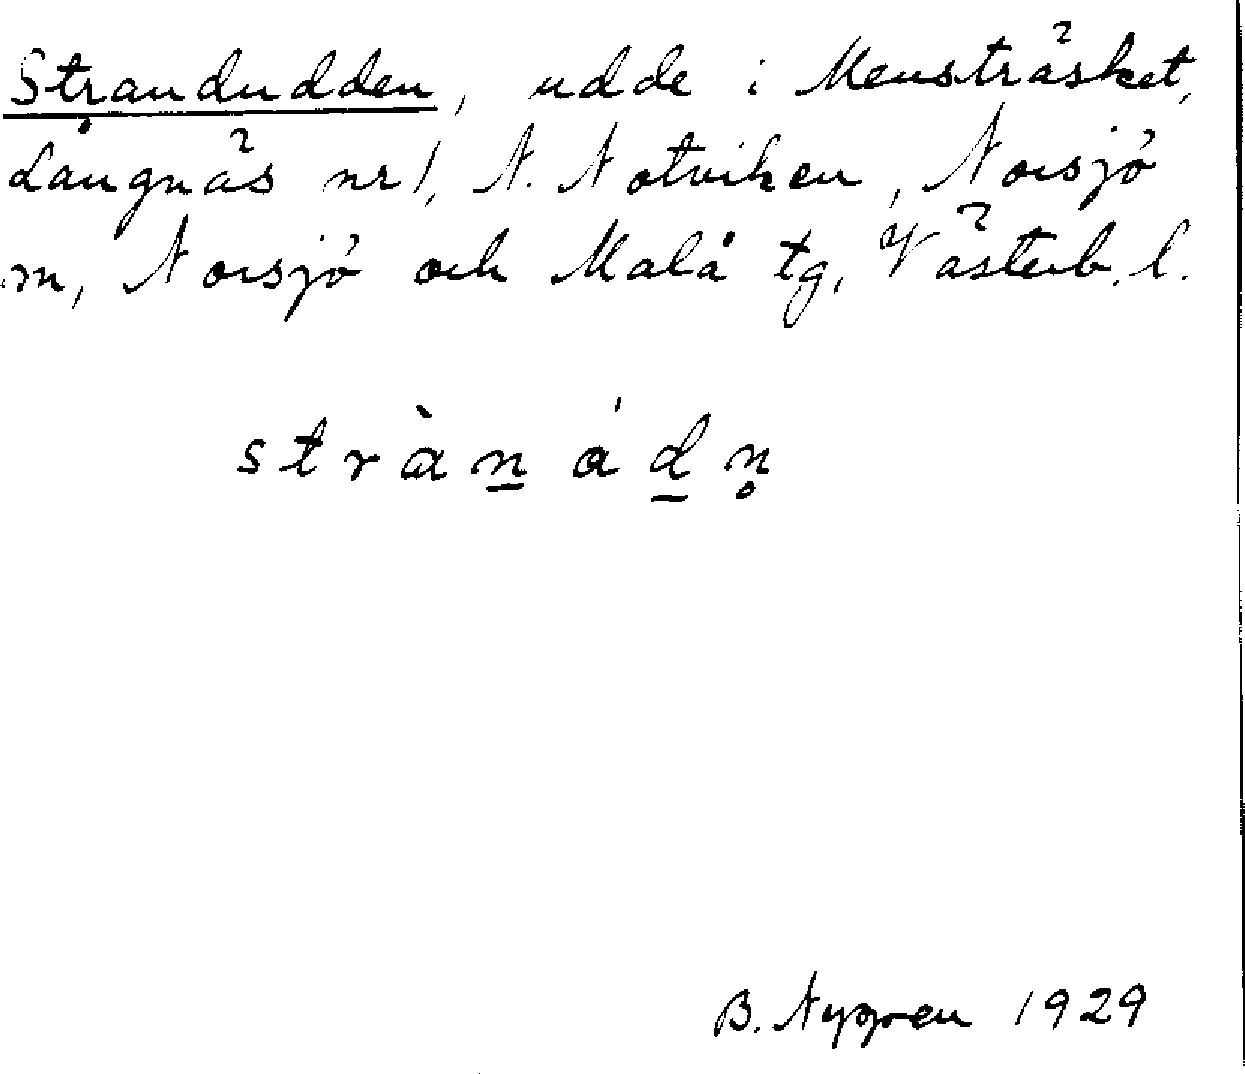 Strandudden, udde i Mensträsket,
Långnäs nr 1, N. Notviken, Norsjö
m, Norsjö och Malå tg, Västerb. l.
stràn̲ ád̲n̥
B. Nygren 1929